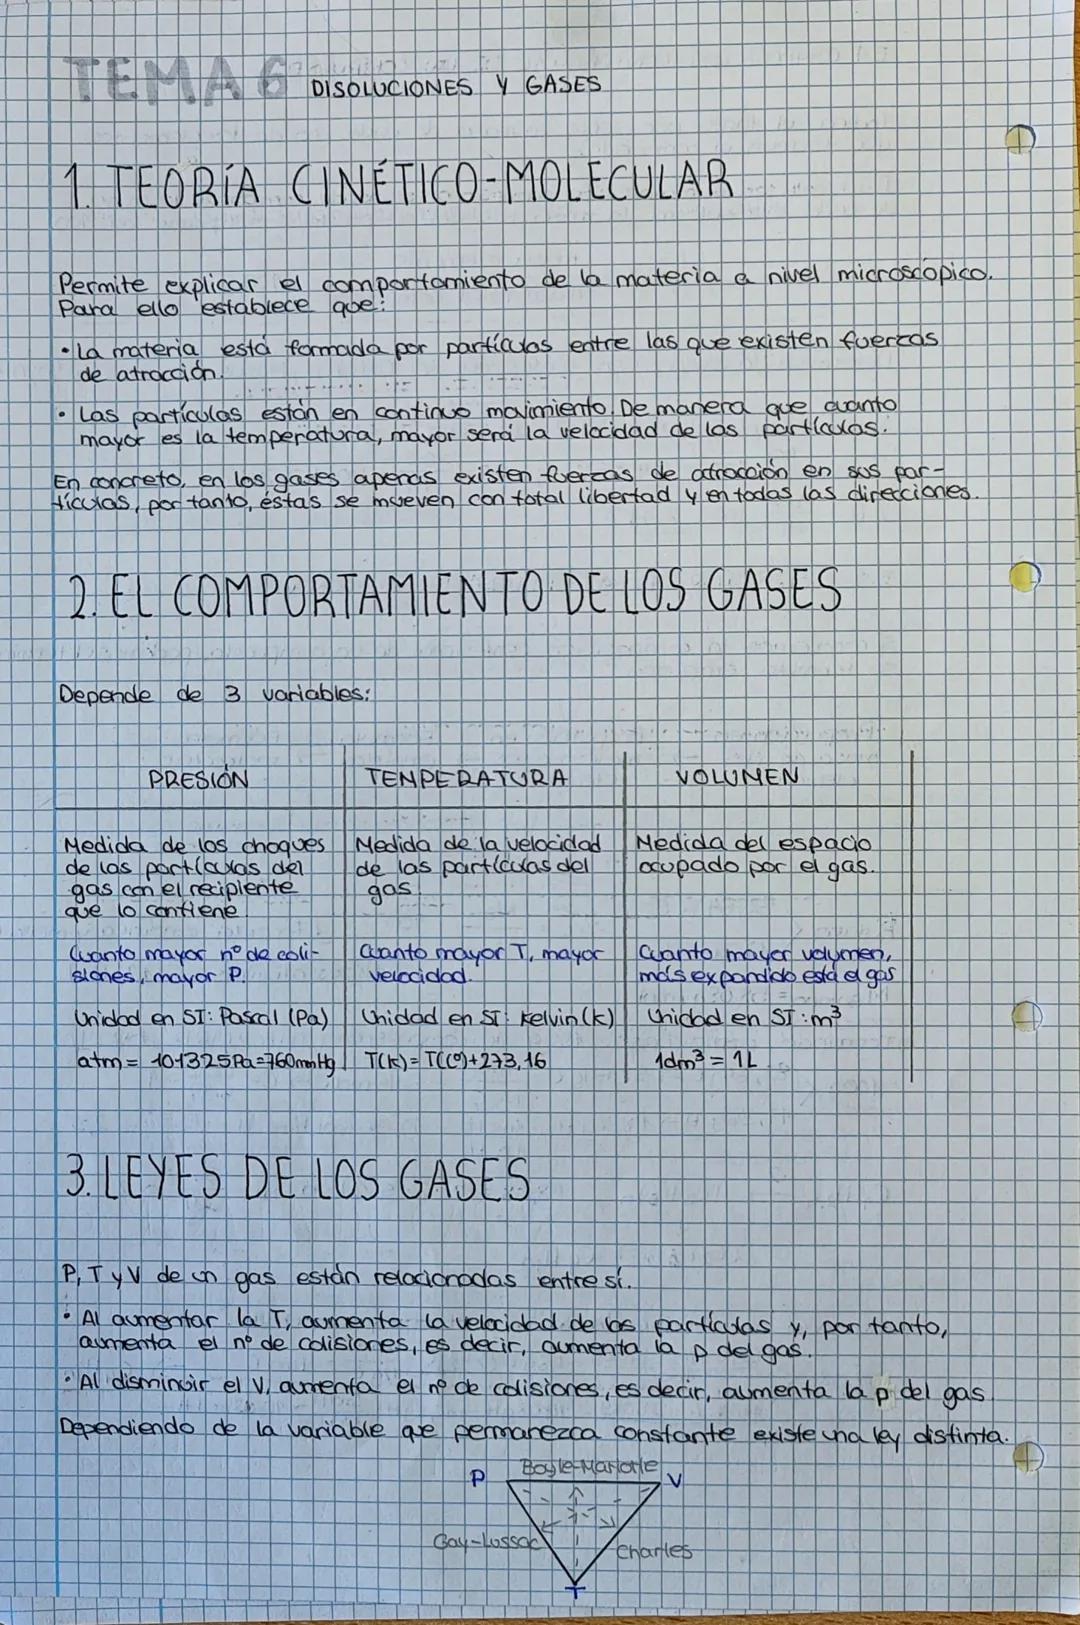 TEMA 6 DISOLUCIONES Y GASES
1. TEORÍA CINÉTICO-MOLECULAR
Permite explicar el comportamiento de la materia a nivel microscópico.
Para ello establece que:
• La materia está formada por partículas entre las que existen fuerzas
de atracción.
• Las partículas están en continuo movimiento. De manera que cuanto
mayor es la temperatura, mayor será la velocidad de las partículas.
En concreto, en los gases apenas existen fuerzas de atracción en sus par-
tículas, por tanto, éstas se mueven con total libertad y en todas las direcciones.
2. EL COMPORTAMIENTO DE LOS GASES
Depende de 3 variables:
PRESIÓN
Medida de los choques
de las partículas del
gas con el recipiente
que lo contiene
Cuanto mayor nº de coli-
siones, mayor P.
Unidad en SI: Pascal (Pa)
atm = 101325Pa=760mmHg
TEMPERATURA
Medida de la velocidad
de las partículas del
gas
Cuanto mayor T, mayor
velocidad.
Unidad en SI: Kelvin (K)
T(K)=T(Cº)+273,16
VOLUMEN
Medida del espacio
ocupado por el gas.
Cuanto mayor volumen,
más expandido está el gas
Unidad en SI: m³
1dm³ = 1L
3. LEYES DE LOS GASES
P, T y V de un gas están relacionadas entre sí.
• Al aumentar la T, aumenta la velocidad de las partículas y, por tanto,
aumenta el nº de colisiones, es decir, aumenta la p del gas.
• Al disminuir el V, aumenta el nº de colisiones, es decir, aumenta la p del gas.
Dependiendo de la variable que permanezca constante existe una ley distinta.
P Boyle-Mariotte V
Gay-Lussac Charles
T